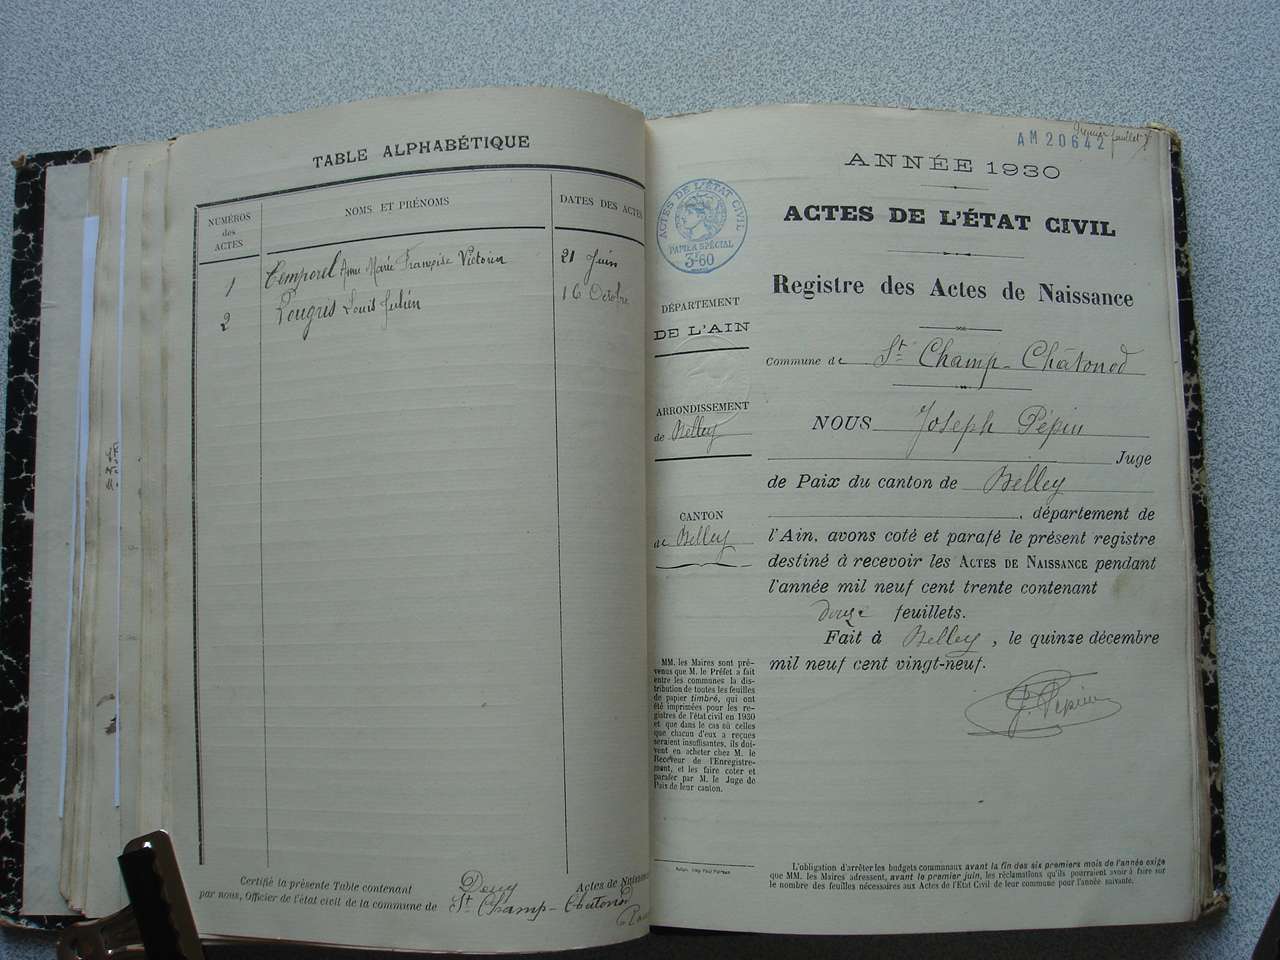 TABLE ALPHABÉTIQUE
NUMÉROS
des
ACTES
NOMS ET PRÉNOMS
DATES DES ACTES
1 Temporel Anne Marie Françoise Victorin 21 Juin
2 Pougris Louis Julien 16 Octobre
Certifié la présente Table contenant Deux Actes de Naissance
par nous, Officier de l'état civil de la commune de St Champ-Chatonod
AM 20642
premier feuillet
ANNÉE 1930
ACTES DE L'ÉTAT CIVIL
PAPIER SPÉCIAL
3F60
ACTES DE L'ÉTAT CIVIL
Registre des Actes de Naissance
DÉPARTEMENT
DE L'AIN
ARRONDISSEMENT
de Belley
CANTON
de Belley
Commune de St Champ-Châtonod
NOUS Joseph Pépin
Juge
de Paix du canton de Belley
, département de
l'Ain, avons coté et parafé le présent registre
destiné à recevoir les ACTES DE NAISSANCE pendant
l'année mil neuf cent trente contenant
douze feuillets.
Fait à Belley, le quinze décembre
mil neuf cent vingt-neuf.
J. Pépin
MM. les Maires sont pré-
venus que M. le Préfet a fait
entre les communes la dis-
tribution de toutes les feuilles
de papier timbré, qui ont
été imprimées pour les re-
gistres de l'état civil en 1930
et que dans le cas où celles
que chacun d'eux a reçues
seraient insuffisantes, ils doi-
vent en acheter chez M. le
Receveur de l'Enregistre-
ment, et les faire coter et
parafer par M. le Juge de
Paix de leur canton.
L'obligation d'arrêter les budgets communaux avant la fin des six premiers mois de l'année exige
que MM. les Maires adressent, avant le premier juin, les réclamations qu'ils pourraient avoir à faire sur
le nombre des feuilles nécessaires aux Actes de l'Etat Civil de leur commune pour l'année suivante.